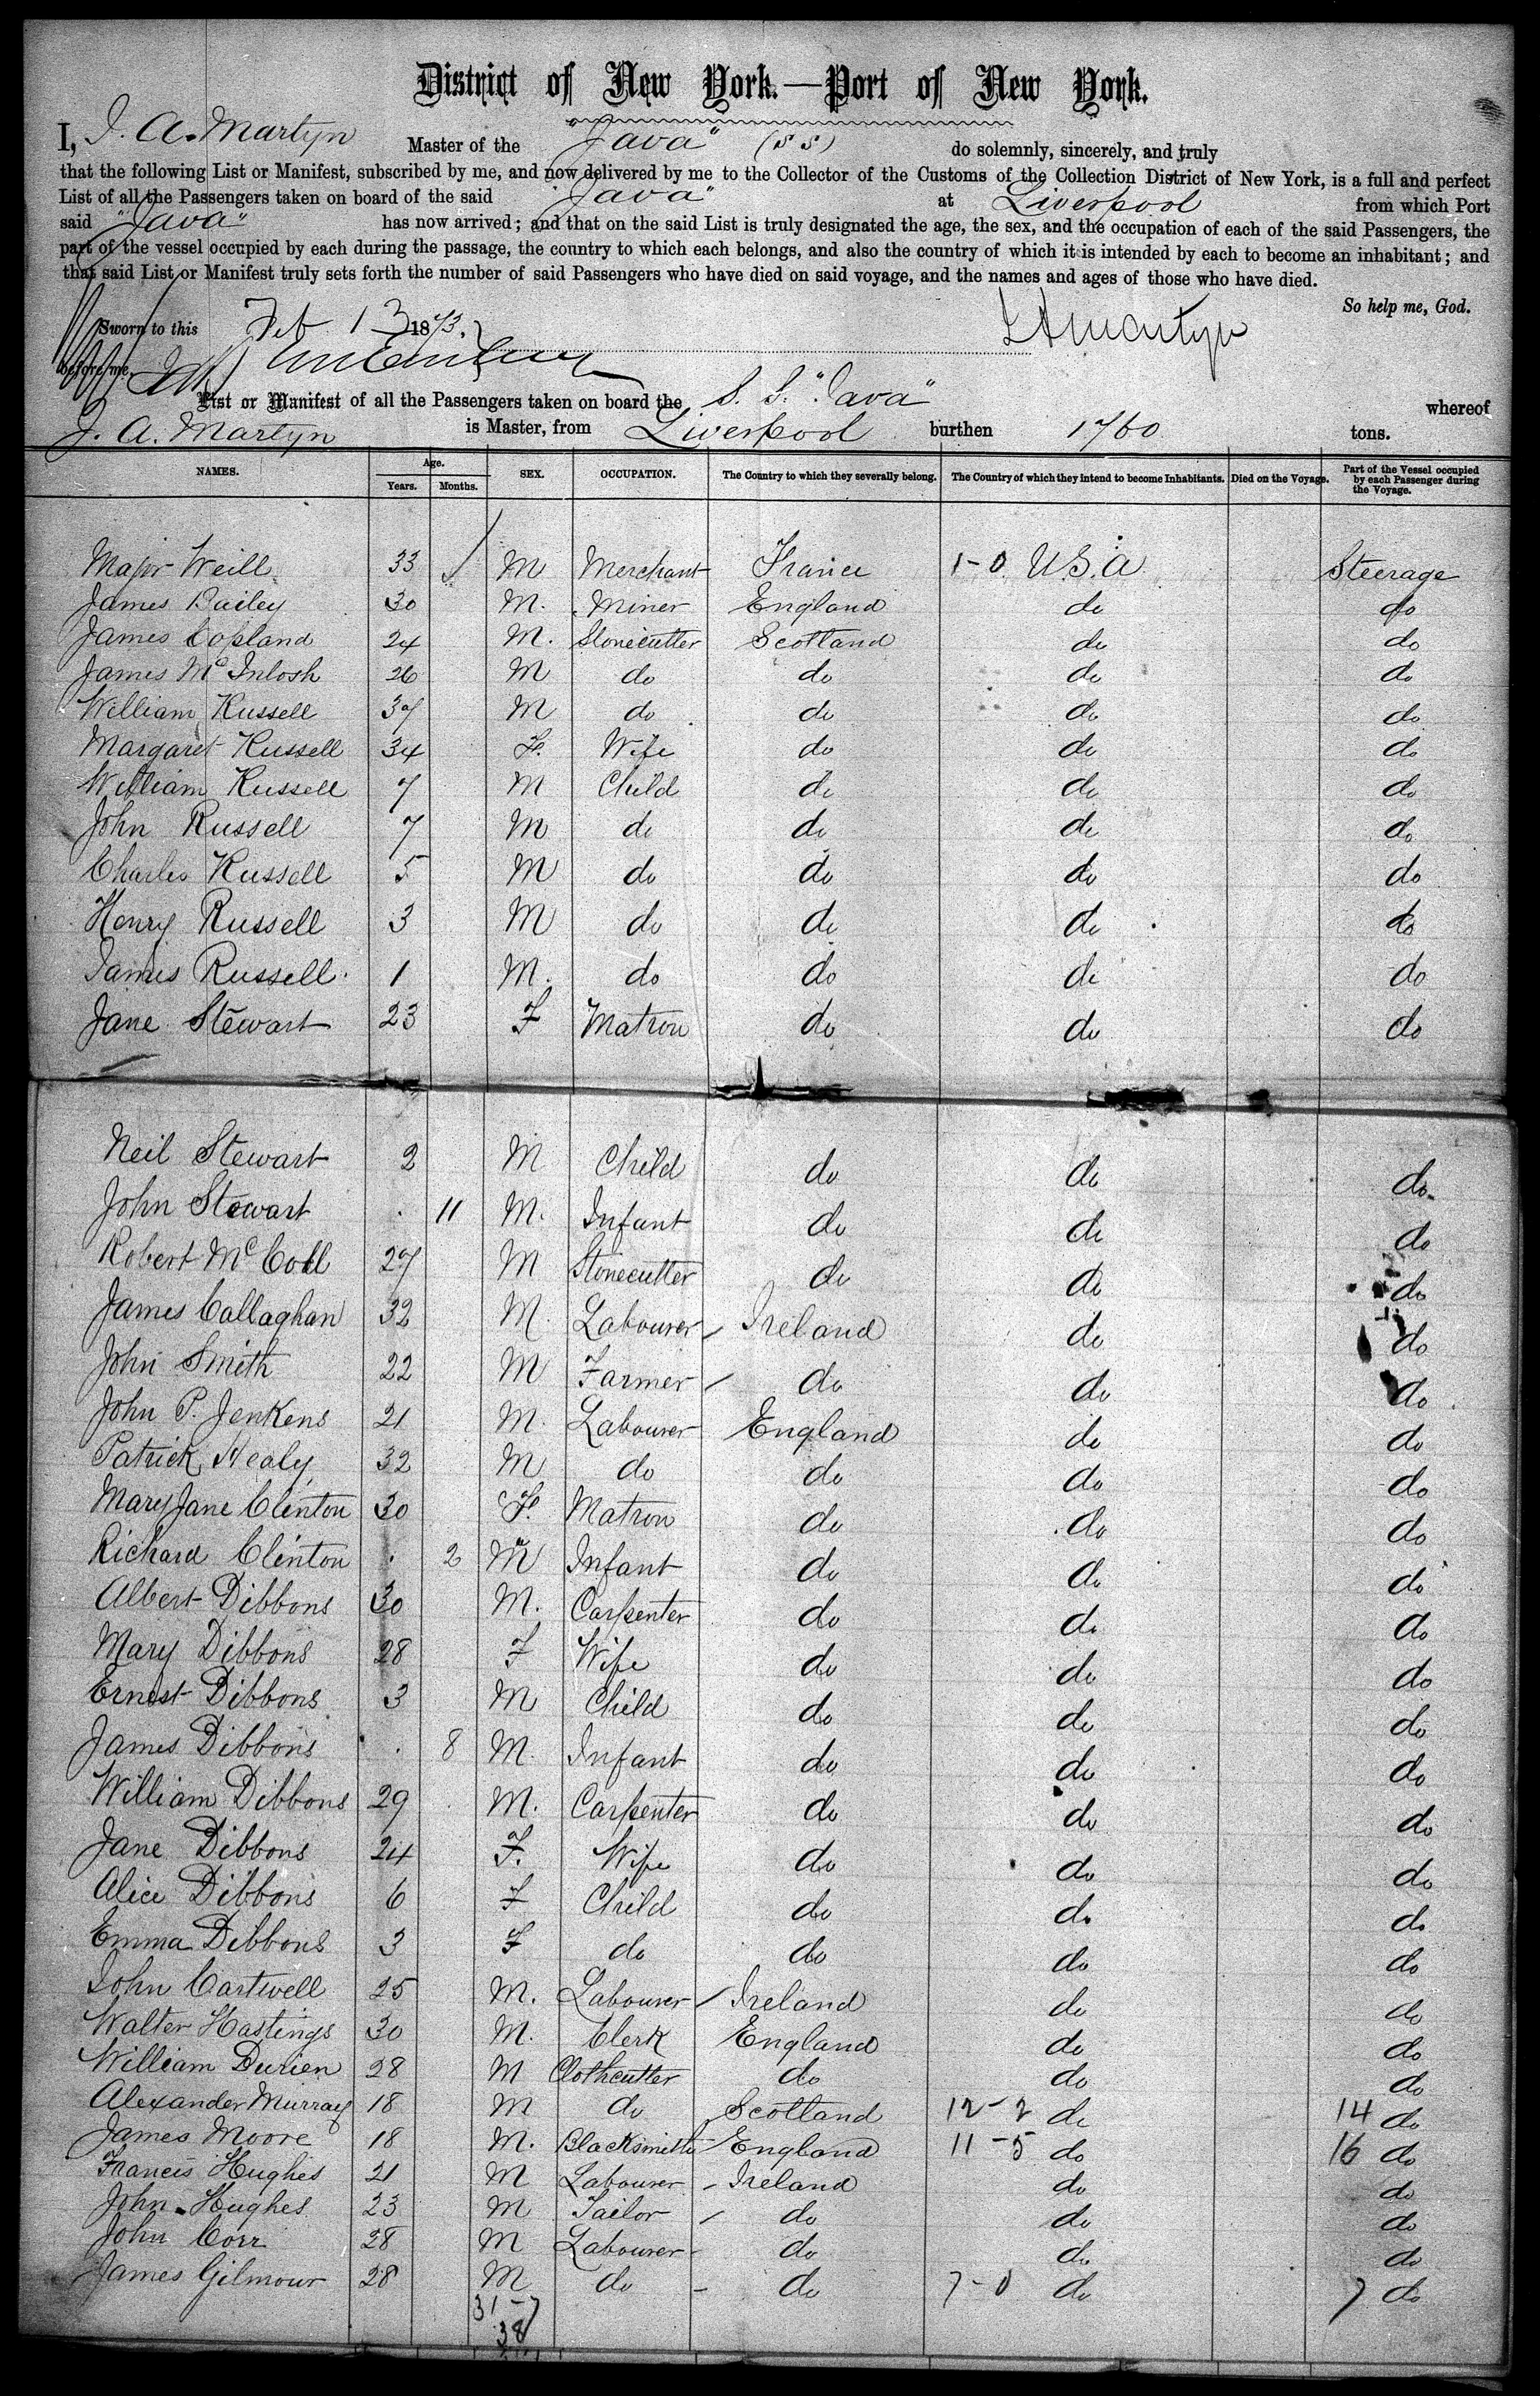 District of New York.—Port of New York.
I, J. A. Martyn Master of the "Java" (SS) do solemnly, sincerely, and truly
that the following List or Manifest, subscribed by me, and now delivered by me to the Collector of the Customs of the Collection District of New York, is a full and perfect
List of all the Passengers taken on board of the said "Java" at Liverpool from which Port
said "Java" has now arrived; and that on the said List is truly designated the age, the sex, and the occupation of each of the said Passengers, the
part of the vessel occupied by each during the passage, the country to which each belongs, and also the country of which it is intended by each to become an inhabitant; and
that said List or Manifest truly sets forth the number of said Passengers who have died on said voyage, and the names and ages of those who have died.
So help me, God.
Sworn to this Feb 13 1873. J A Martyn
before me,
List or Manifest of all the Passengers taken on board the S. S. "Java" whereof
J. A. Martyn is Master, from Liverpool burthen 1760 tons.
NAMES. Age. Years. Months. SEX. OCCUPATION. The Country to which they severally belong. The Country of which they intend to become Inhabitants. Died on the Voyage. Part of the Vessel occupied by each Passenger during the Voyage.
Major Weill 33 M Merchant France 1-0 U.S.A Steerage
James Bailey 30 M. Miner England do do
James Copland 24 M. Stonecutter Scotland do do
James McIntosh 26 M do do do do
William Russell 37 M do do do do
Margaret Russell 34 F. Wife do do do
William Russell 7 M Child do do do
John Russell 7 M do do do do
Charles Russell 5 M do do do do
Henry Russell 3 M do do do do
James Russell 1 M. do do do do
Jane Stewart 23 F Matron do do do
Neil Stewart 2 M Child do do do
John Stewart . 11 M. Infant do do do
Robert McColl 27 M Stonecutter do do do
James Callaghan 32 M. Labourer Ireland do do
John Smith 22 M Farmer do do do
John P. Jenkens 21 M. Labourer England do do
Patrick Healy 32 M do do do do
Mary Jane Clenton 30 F. Matron do do do
Richard Clenton . 2 M Infant do do do
Albert Dibbons 30 M. Carpenter do do do
Mary Dibbons 28 F Wife do do do
Ernest Dibbons 3 M Child do do do
James Dibbons . 8 M. Infant do do do
William Dibbons 29 M. Carpenter do do do
Jane Dibbons 24 F. Wife do do do
Alice Dibbons 6 F Child do do do
Emma Dibbons 3 F do do do do
John Cartwell 25 M. Labourer Ireland do do
Walter Hastings 30 M. Clerk England do do
William Durien 28 M Clothcutter do do do
Alexander Murray 18 M do Scotland 12-2 do 14 do
James Moore 18 M. Blacksmith England 11-5 do 16 do
Francis Hughes 21 M Labourer Ireland do do
John Hughes 23 M Tailor do do do
John Corr 28 M Labourer do do do
James Gilmour 28 M do do 7-0 do 7 do
31-7
38